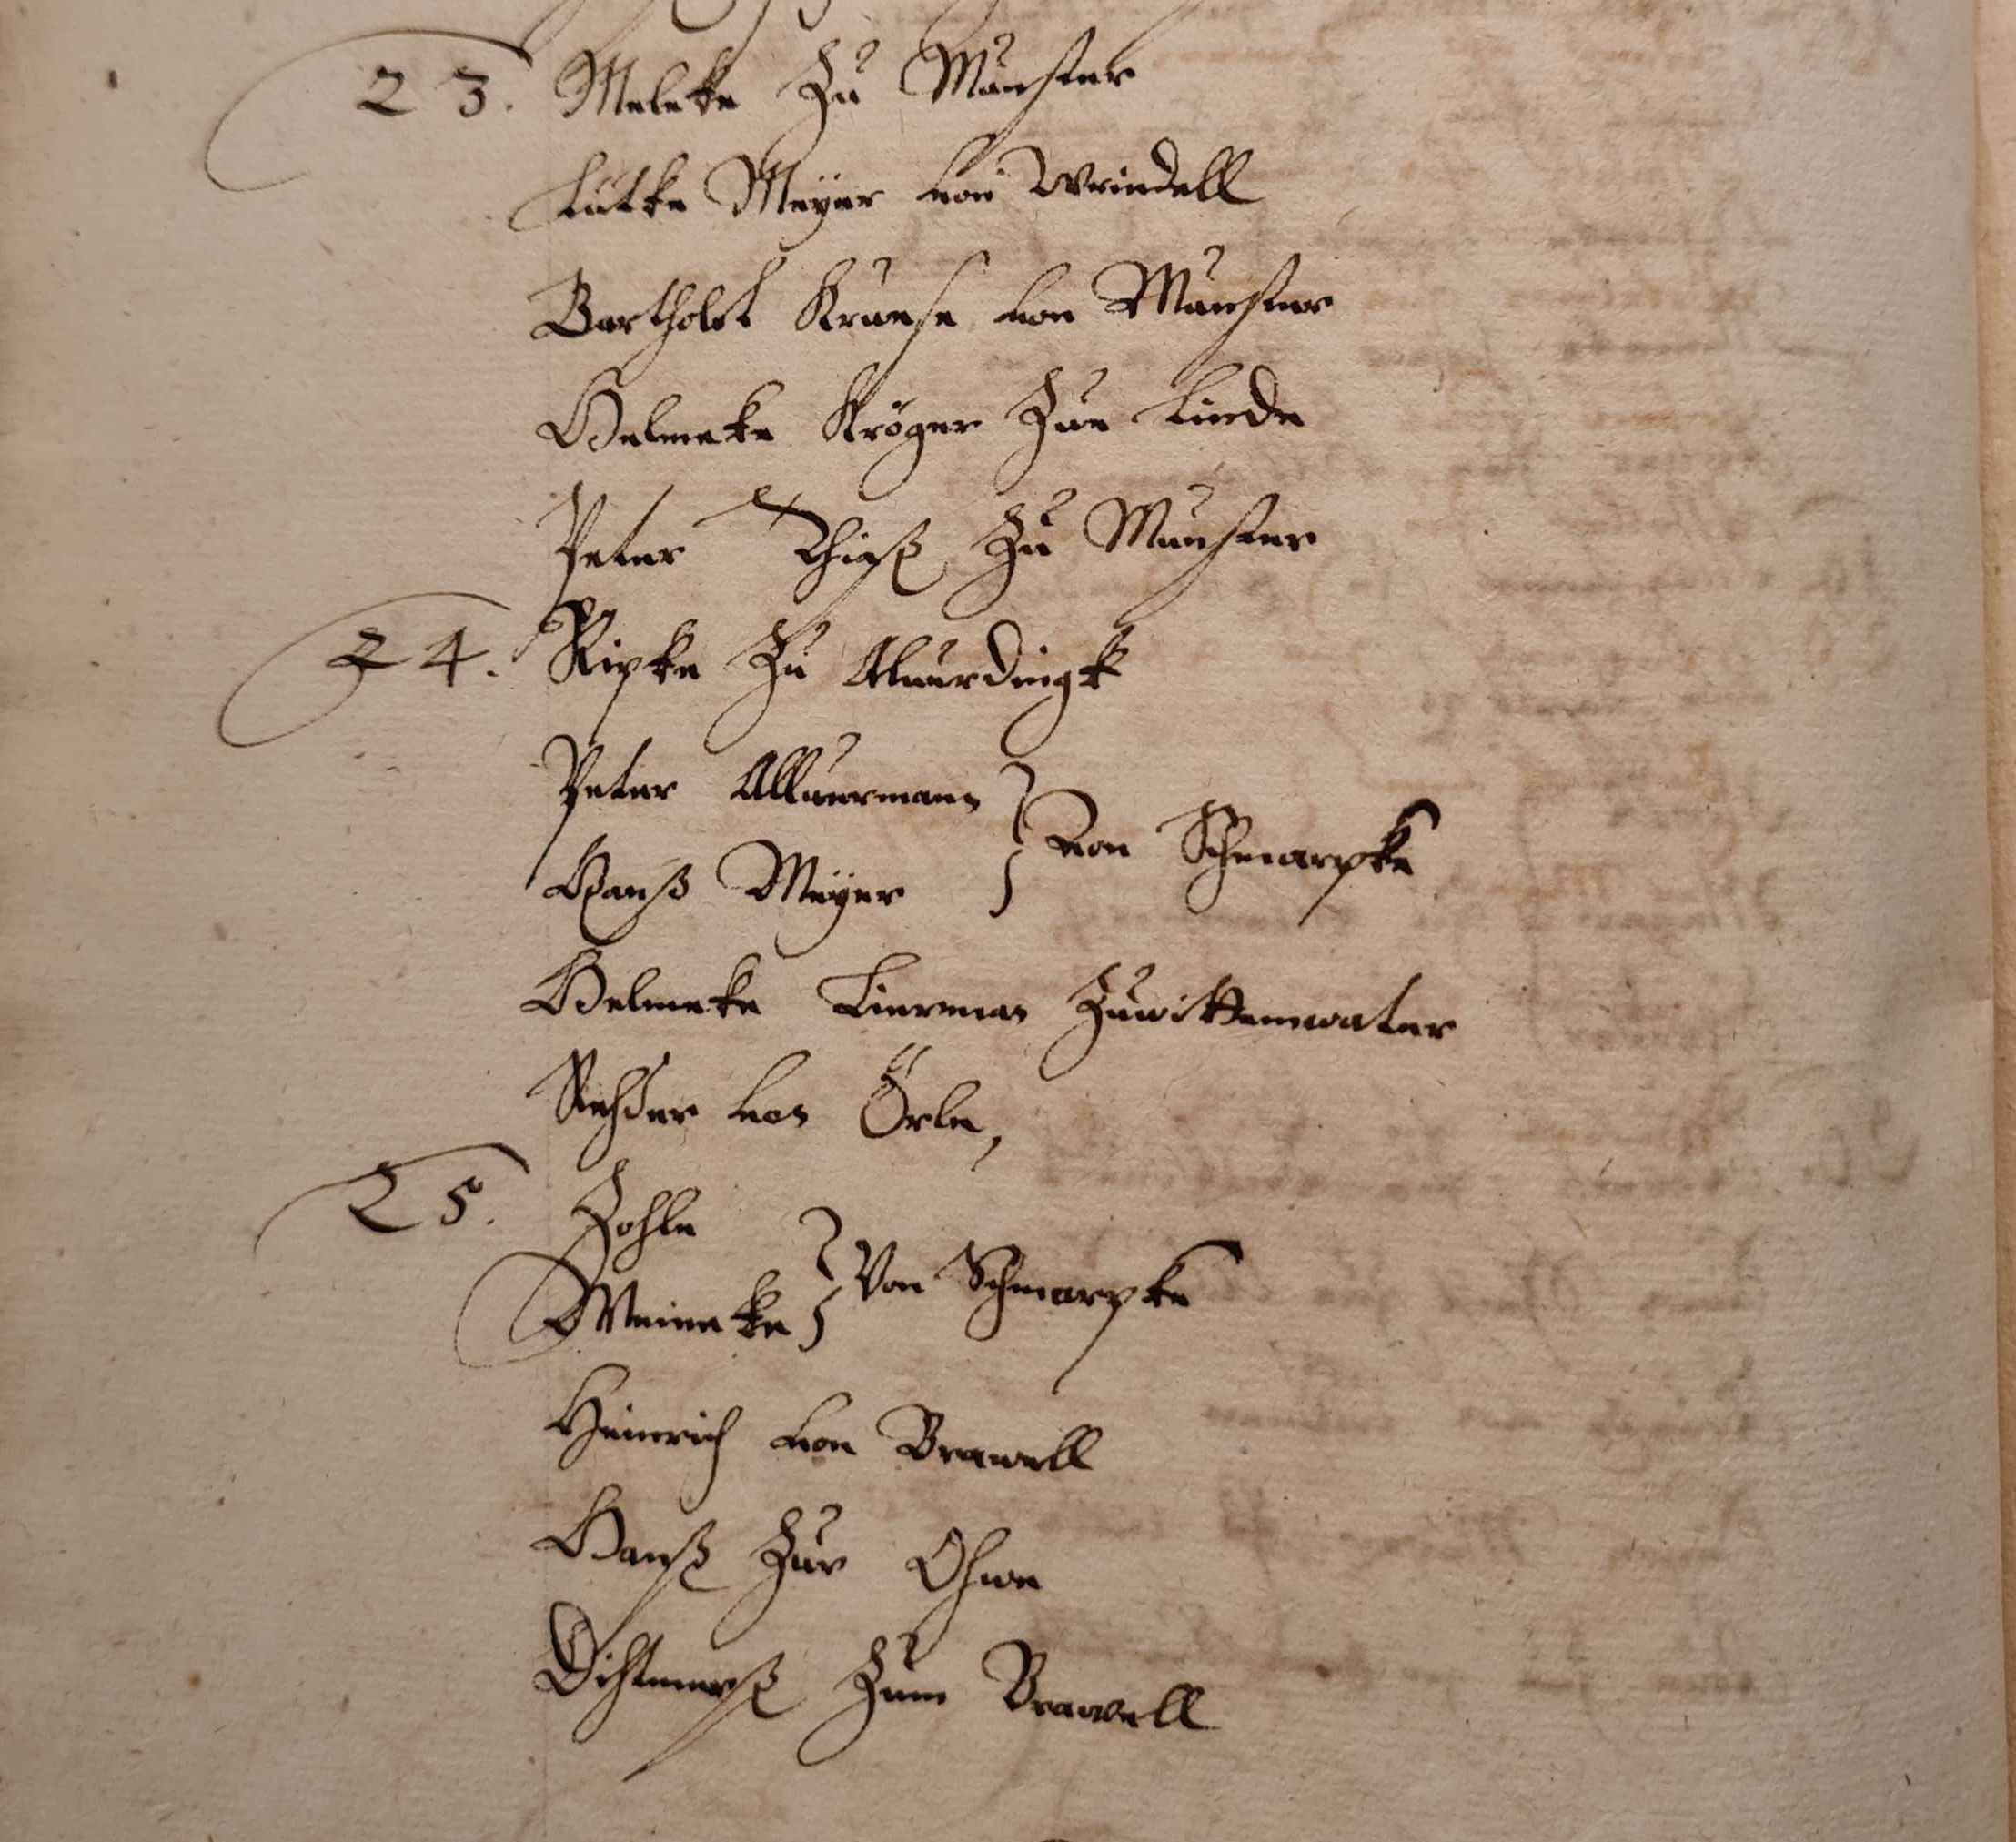 23. Meleke Zu Münster
Lütke Meyer von Wrindell
Bartholt Kruese von Münster
Helmeke Kröger Zue Linde
Peter Thieß Zu Münster
24. Ripke Zu Alvurdingk
Peter Alluermann
von Schmarpke
Hanß Meyer
Helmeke Lierman Zu wittenwater
Rehder von Örle,
25. Hohle
Von Schmarpke
Meineke
Heinrich von Brawell
Hanß Zur Ohwe
Dihtmerß Zum Brawell